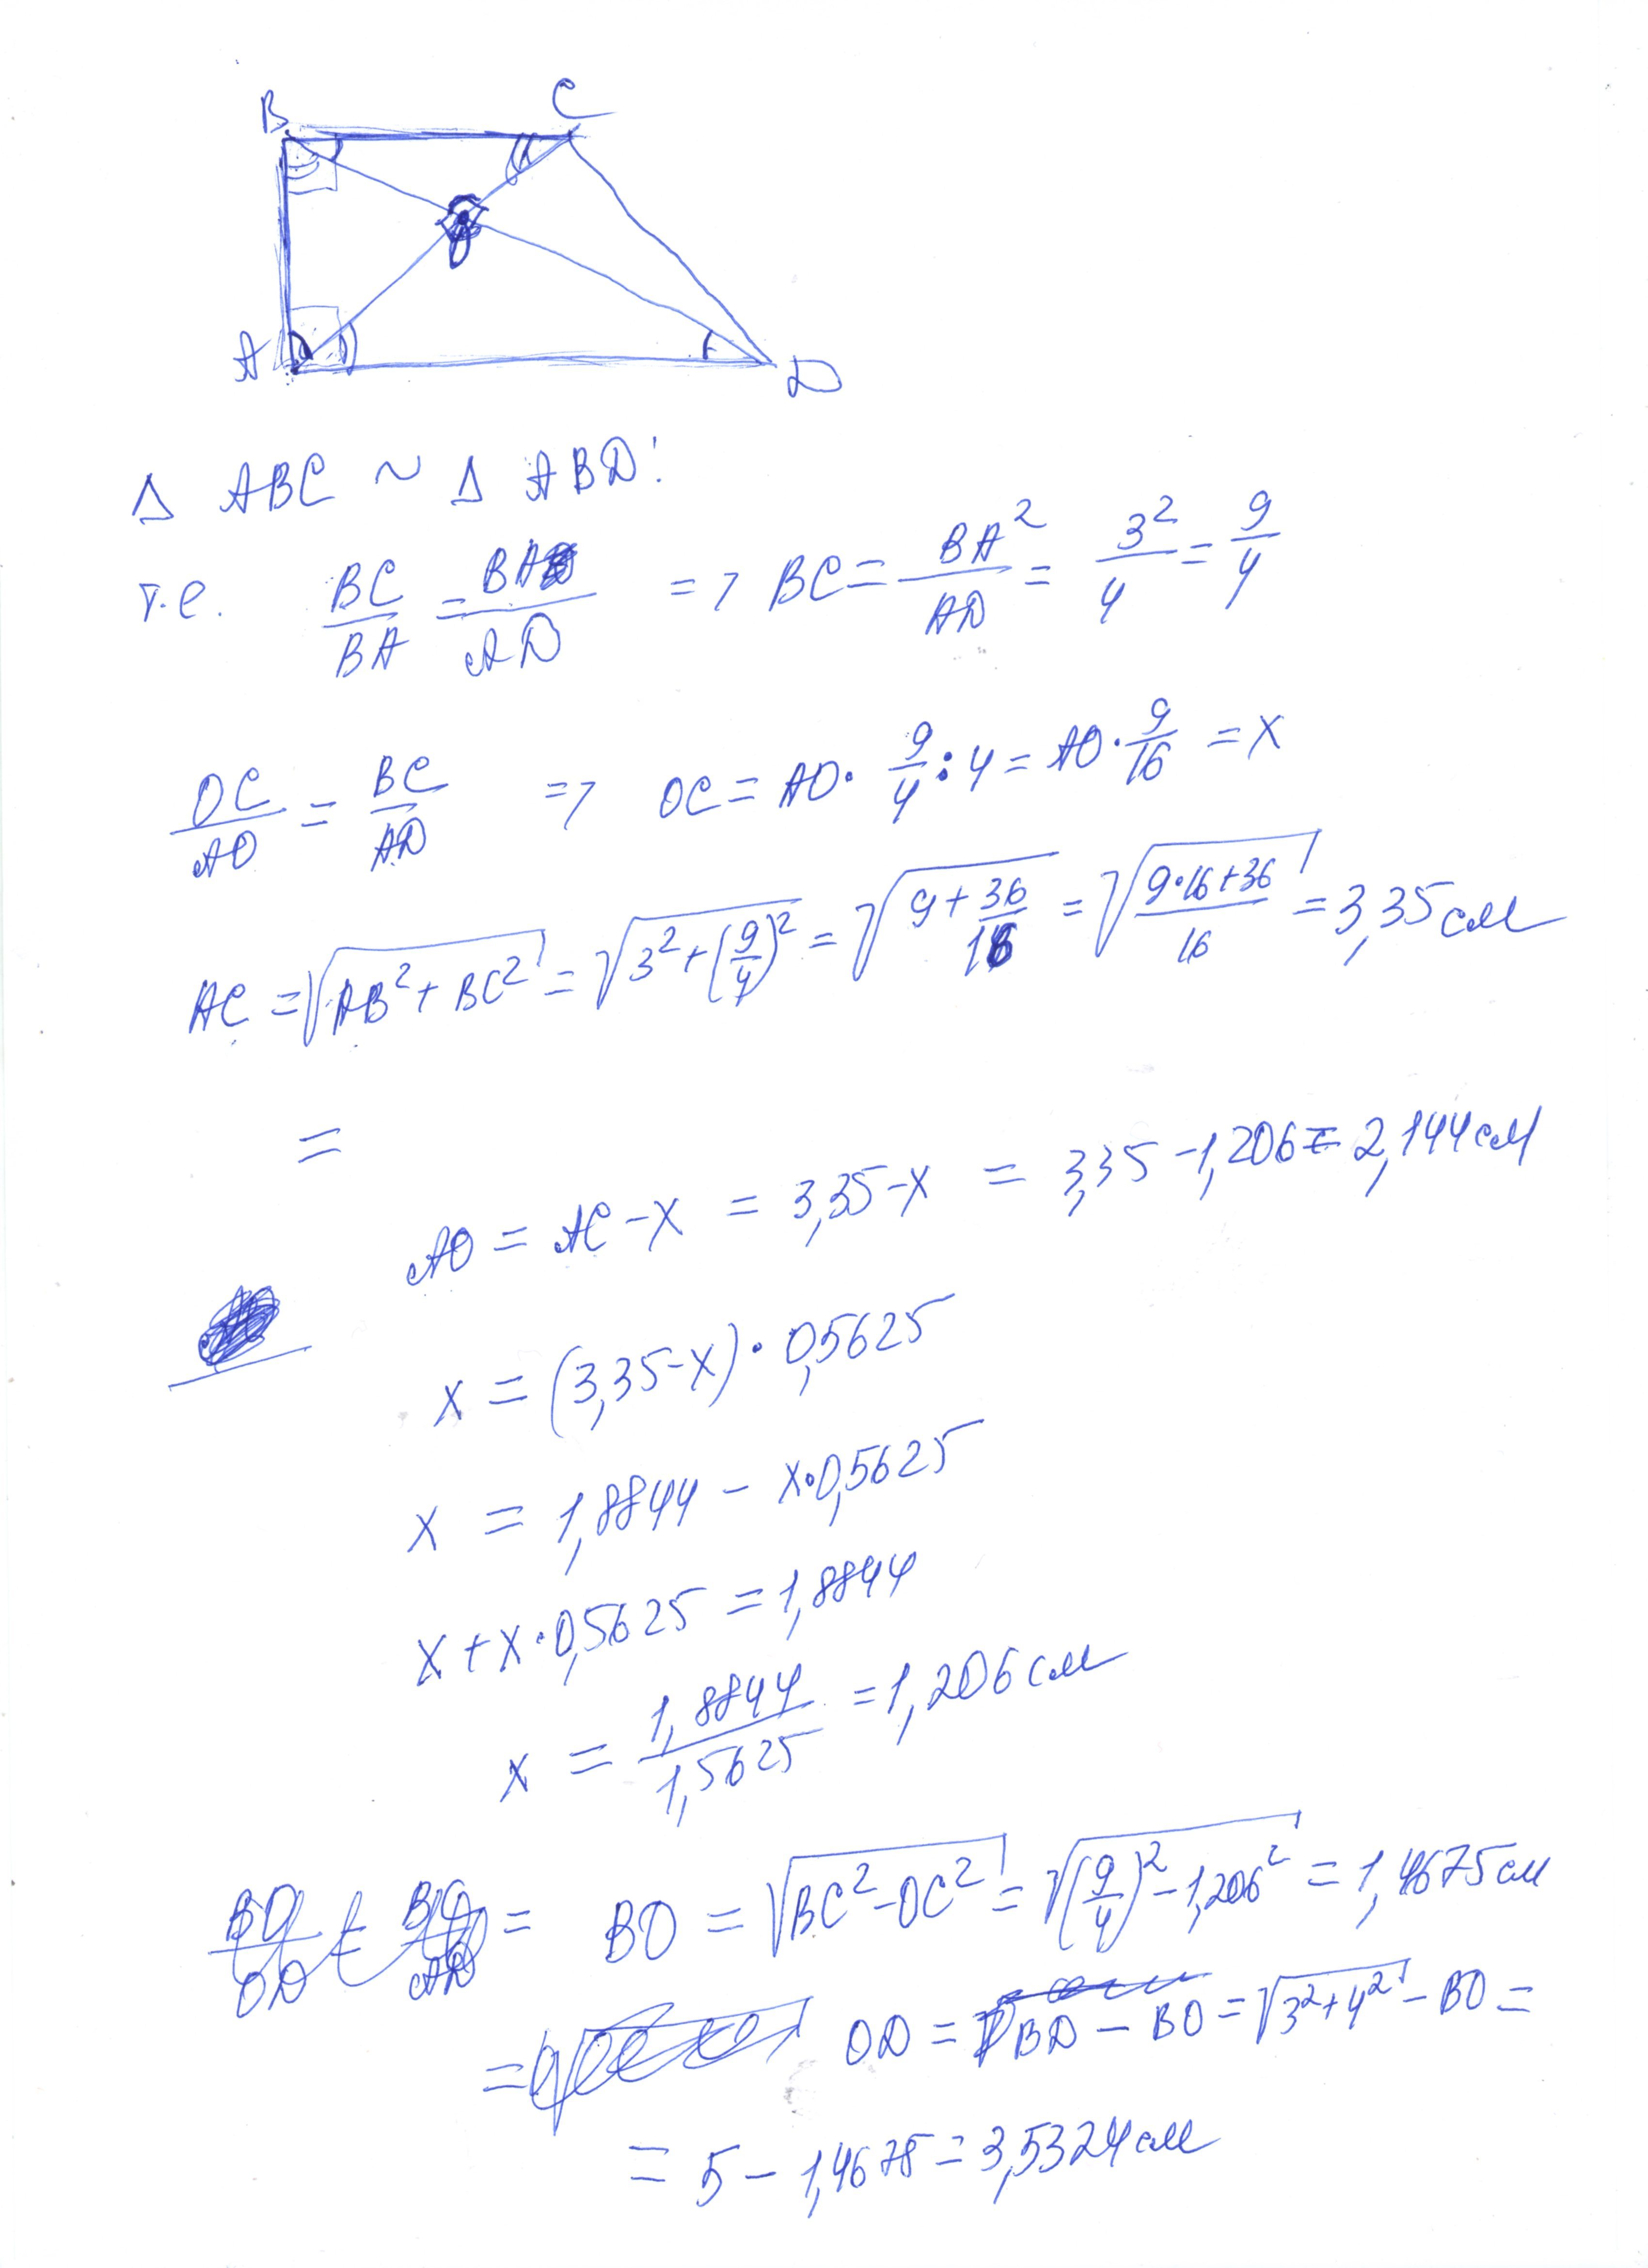 B C
O
A D
Δ ABC ~ Δ ABD:
т.е. BC/BA = BA/AD => BC = BA²/AD = 3²/4 = 9/4
OC/AO = BC/AD => OC = AO · 9/4 : 4 = AO · 9/16 = x
AC = √(AB² + BC²) = √(3² + (9/4)²) = √(9 + 36/16) = √((9·16+36)/16) = 3,35 см
=
AO = AC - x = 3,35 - x = 3,35 - 1,206 = 2,144 см
x = (3,35 - x) · 0,5625
x = 1,8844 - x·0,5625
x + x·0,5625 = 1,8844
x = 1,8844/1,5625 = 1,206 см
BO = √(BC² - OC²) = √((9/4)² - 1,206²) = 1,4675 см
OD = BD - BO = √(3² + 4²) - BO =
= 5 - 1,4675 = 3,5324 см